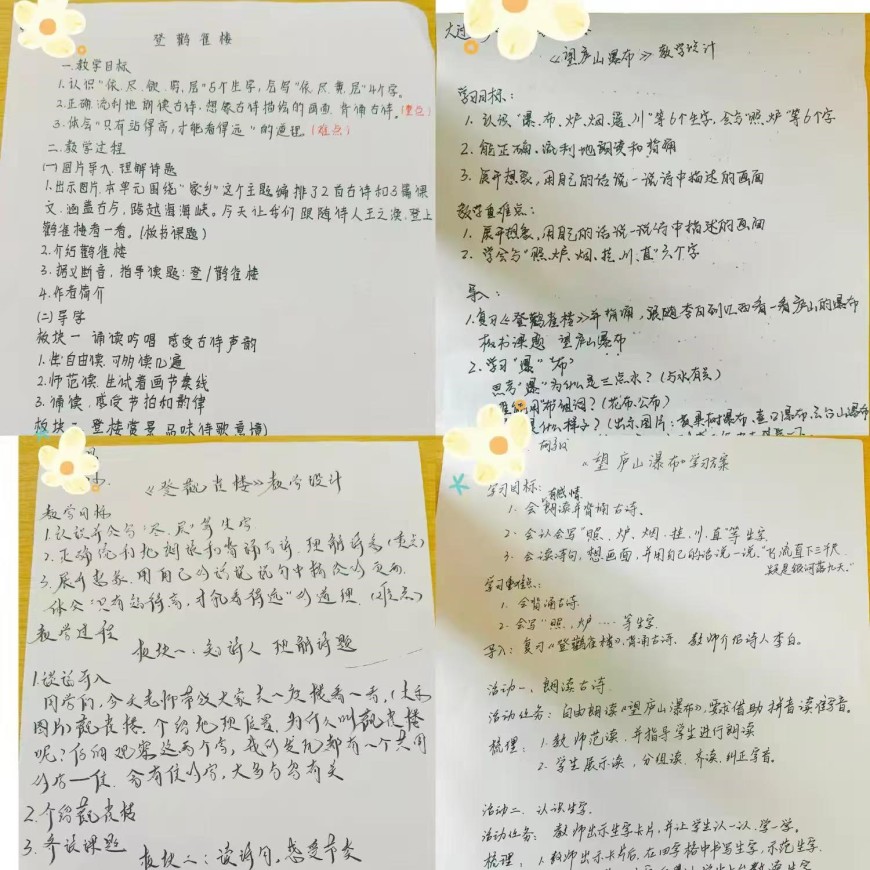 登鹳雀楼
一.教学目标
1.认识"依、尽、欲、穷、层"5个生字,后写"依、尽、黄、层"4个字。
2.正确流利地朗读古诗,想象古诗描绘的画面,背诵古诗。(重点)
3.体会"只有站得高,才能看得远"的道理。(难点)
二.教学过程
(一)图片导入,理解诗题
1.出示图片,本单元围绕"家乡"这个主题编排了2首古诗和3篇课
文,涵盖古今,跨越海峡。今天让我们跟随诗人王之涣,登上
鹳雀楼看一看。(板书课题)
2.介绍鹳雀楼
3.据义断音,指导读题:登/鹳雀楼
4.作者简介
(二)导学
板块一 诵读吟唱 感受古诗声韵
1.生自由读,可多读几遍
2.师范读,生试着画节奏线
3.诵读,感受节拍和韵律
板块二 登楼赏景 品味诗歌意境)
《望庐山瀑布》教学设计
学习目标:
1.认识"瀑、布、炉、烟、遥、川"等6个生字,会写"照、炉"等6个字
2.能正确、流利地朗读和背诵
3.展开想象,用自己的话说一说诗中描述的画面
教学重难点:
1.展开想象,用自己的话说一说诗中描述的画面
2.学会写"照、炉、烟、挂、川、直"六个字
导入:
1.复习《登鹳雀楼》并背诵,跟随李白到江西看一看庐山的瀑布
板书课题 望庐山瀑布
2.学习"瀑""布"
思考"瀑"为什么是三点水?(与水有关)
用"布"组词?(花布、公布)
是什么样子?(出示图片:黄果树瀑布、云台山瀑布
《登鹳雀楼》教学设计
教学目标
1.认识并会写"尽、层"等生字
2.正确流利地朗读和背诵古诗,理解诗意(重点)
3.展开想象,用自己的话说说句中描绘的画面,
体会"只有站得高,才能看得远"的道理。(难点)
教学过程
板块一:知诗人 理解诗题
1.谈话导入
同学们,今天老师带领大家去一座楼看一看,(出示
图片)鹳雀楼。介绍地理位置,为什么叫鹳雀楼
呢?仔细观察这两个字,我们发现都有一个共同
的启—隹,含有隹的字,大多与鸟有关
2.介绍鹳雀楼
3.齐读课题
板块二:读诗句,感受节奏
《望庐山瀑布》学习方案
学习目标:
1.会有感情朗读并背诵古诗.
2.会认会写"照、炉、烟、挂、川、直"等生字.
3.会读诗句,想画面,并用自己的话说一说,"飞流直下三千尺
疑是银河落九天。"
学习重难点:
1.会背诵古诗.
2.会写"照、炉……等生字.
导入:复习《登鹳雀楼》,背诵古诗. 教师介绍诗人李白。
活动一、朗读古诗.
活动任务:自由朗读《望庐山瀑布》,要求借助拼音读准字音。
梳理:1.教师范读,并指导学生进行朗读.
2.学生展示读,分组读、齐读,纠正字音。
活动二、认识生字.
活动任务:教师出示生字卡片,并让学生认一认,学一学。
梳理:1.教师出示卡片后,在四字格中书写生字,示范生字.